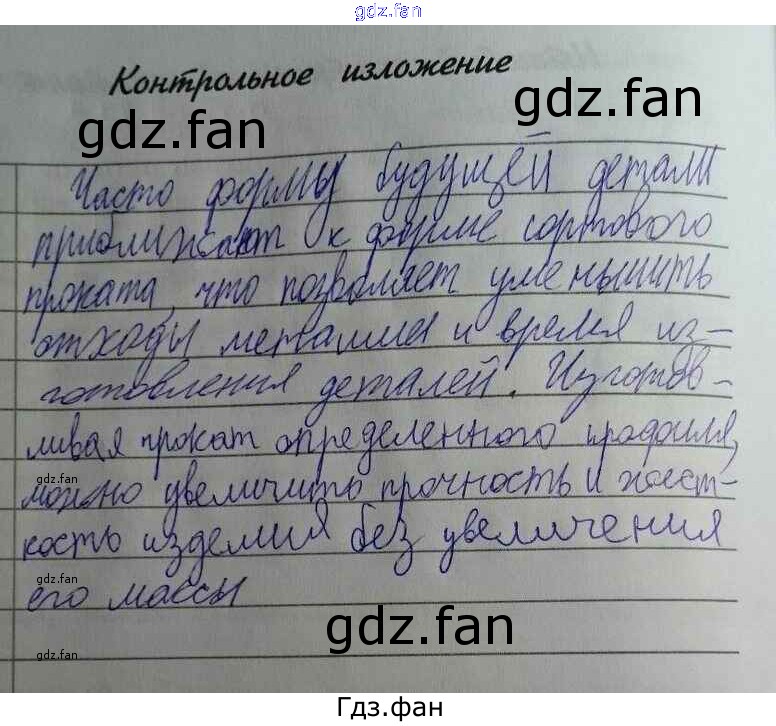 gdz.fan
Контрольное изложение
gdz.fan
gdz.fan
Часто формы будущей детали
приближают к форме сортового
проката, что позволяет уменьшить
отходы металла и время из-
готовления деталей. Изготов-
ливая прокат определенного профиля,
gdz.fan
можно увеличить прочность и жест-
кость изделия без увеличения
gdz.fan
его массы
gdz.fan
gdz.fan
Гдз.фан